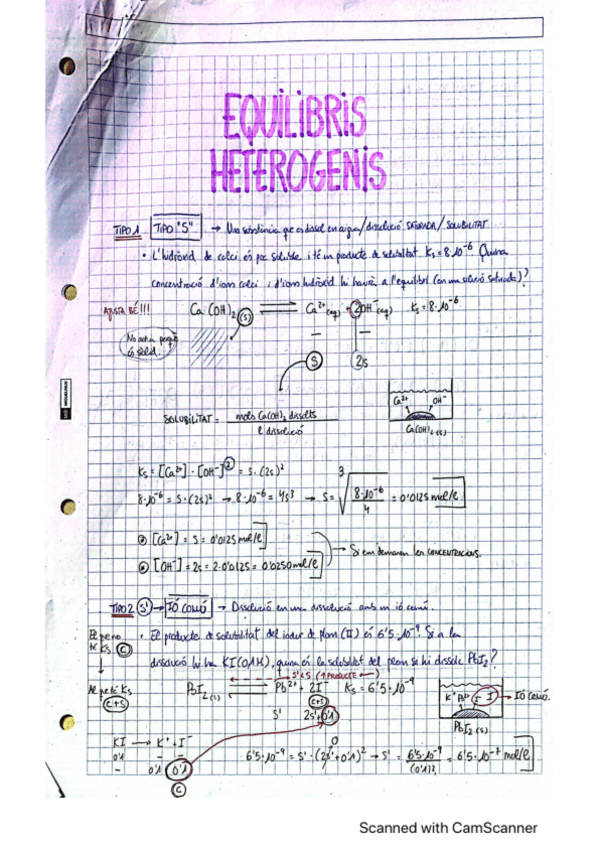 EQUILIBRIS
HETEROGENIS
TIPO 1 TIPO "S" → Una substància que es dissol en aigua/dissolució SATURADA/SOLUBILITAT
• L'hidròxid de calci és poc soluble i té un producte de solubilitat Ks = 8·10⁻⁶. Quina
concentració d'ions calci i d'ions hidròxid hi haurà a l'equilibri (en una solució saturada)?
AJUSTA BÉ!!! Ca(OH)₂ (s) ⇌ Ca²⁺(aq) + 2OH⁻(aq) Ks = 8·10⁻⁶
No actua perquè és sòlid. — —
S 2s
Ca²⁺ OH⁻
Ca(OH)₂ (s)
SOLUBILITAT = mols Ca(OH)₂ dissolts / l dissolució
Ks = [Ca²⁺]·[OH⁻]² = s·(2s)²
8·10⁻⁶ = s·(2s)² → 8·10⁻⁶ = 4s³ → s = ³√(8·10⁻⁶/4) = 0'0125 mol/l
[Ca²⁺] = s = 0'0125 mol/l
[OH⁻] = 2s = 2·0'0125 = 0'0250 mol/l
→ Si em demanen les CONCENTRACIONS.
TIPO 2 (S') → IÓ COMÚ → Dissolució en una dissolució amb un ió comú.
El pe no té Ks (c)
• El producte de solubilitat del iodur de plom (II) és 6'5·10⁻⁹. Si a la
dissolució hi ha KI (0,1M), quina és la solubilitat del plom si hi dissolc PbI₂?
S' < S (↑ PRODUCTE ←)
Al pe té Ks (c+s)
PbI₂ (s) ⇌ Pb²⁺ + 2I⁻ Ks = 6'5·10⁻⁹
(c+s)
S' 2s'+0'1
K⁺ Pb²⁺ I⁻ → Ió comú.
PbI₂ (s)
KI → K⁺ + I⁻
0'1 — —
— 0'1 0'1
C
0
6'5·10⁻⁹ = s'·(2s'+0'1)² → s' = 6'5·10⁻⁹/(0'1)² = 6'5·10⁻⁷ mol/l
Scanned with CamScanner